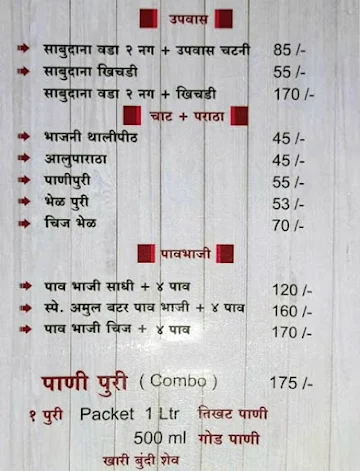 उपवास
साबुदाना वडा २ नग + उपवास चटनी 85 /-
साबुदाना खिचडी 55 /-
साबुदाना वडा २ नग + खिचडी 170 /-
चाट + पराठा
भाजनी थालीपीठ 45 /-
आलुपाराठा 45 /-
पाणीपुरी 55 /-
भेळ पुरी 53 /-
चिज भेळ 70 /-
पावभाजी
पाव भाजी साधी + ४ पाव 120 /-
स्पे. अमुल बटर पाव भाजी + ४ पाव 160 /-
पाव भाजी चिज + ४ पाव 170 /-
पाणी पुरी ( Combo ) 175 /-
१ पुरी Packet 1 Ltr तिखट पाणी
500 ml गोड पाणी
खारी बुंदी शेव